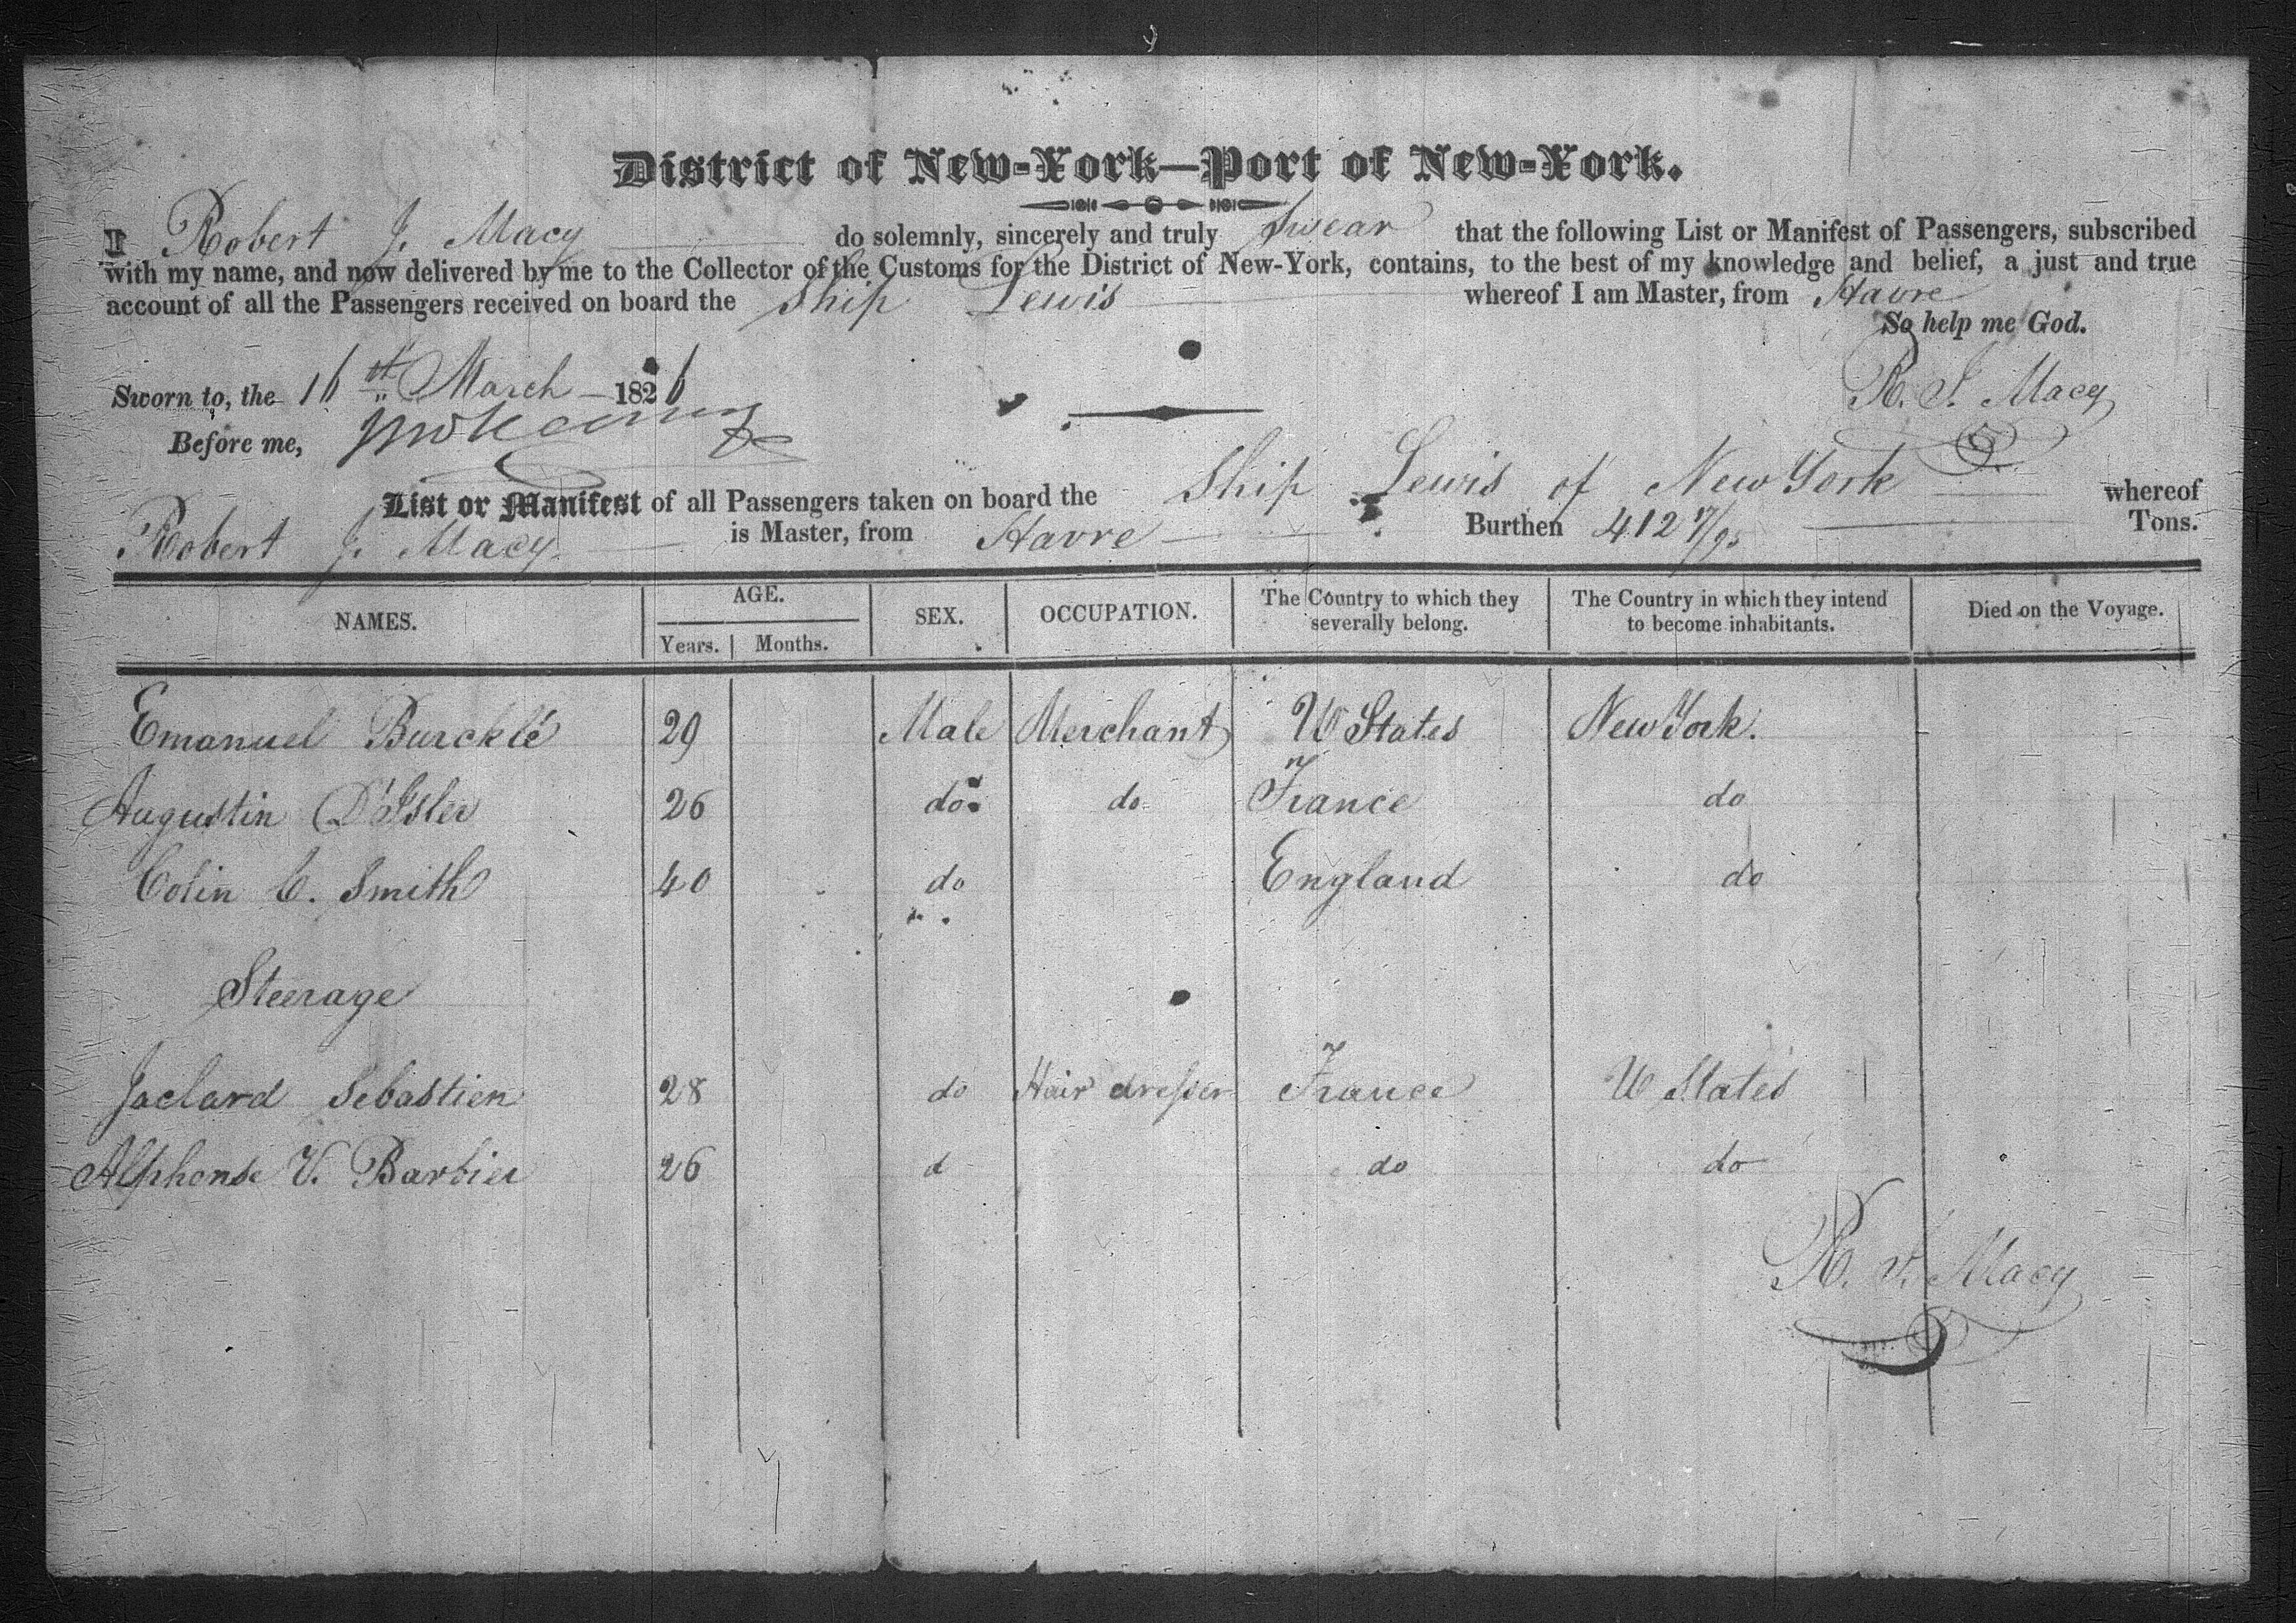 District of New-York—Port of New-York.
I Robert J. Macy do solemnly, sincerely and truly Swear that the following List or Manifest of Passengers, subscribed
with my name, and now delivered by me to the Collector of the Customs for the District of New-York, contains, to the best of my knowledge and belief, a just and true
account of all the Passengers received on board the Ship Lewis whereof I am Master, from Havre
So help me God.
Sworn to, the 16th March 1826 R. J. Macy
Before me,
List or Manifest of all Passengers taken on board the Ship Lewis of New York whereof
Robert J. Macy is Master, from Havre Burthen 412 17/95 Tons.
NAMES. AGE. SEX. OCCUPATION. The Country to which they severally belong. The Country in which they intend to become inhabitants. Died on the Voyage.
Years. Months.
Emanuel Burcklé 29 Male Merchant U States New York.
Augustin D'Isler 26 do do France do
Colin C. Smith 40 do England do
Steerage
Jaclard Sebastien 28 do Hair dresser France U States
Alphonse V. Barbier 26 d do do
R. J. Macy